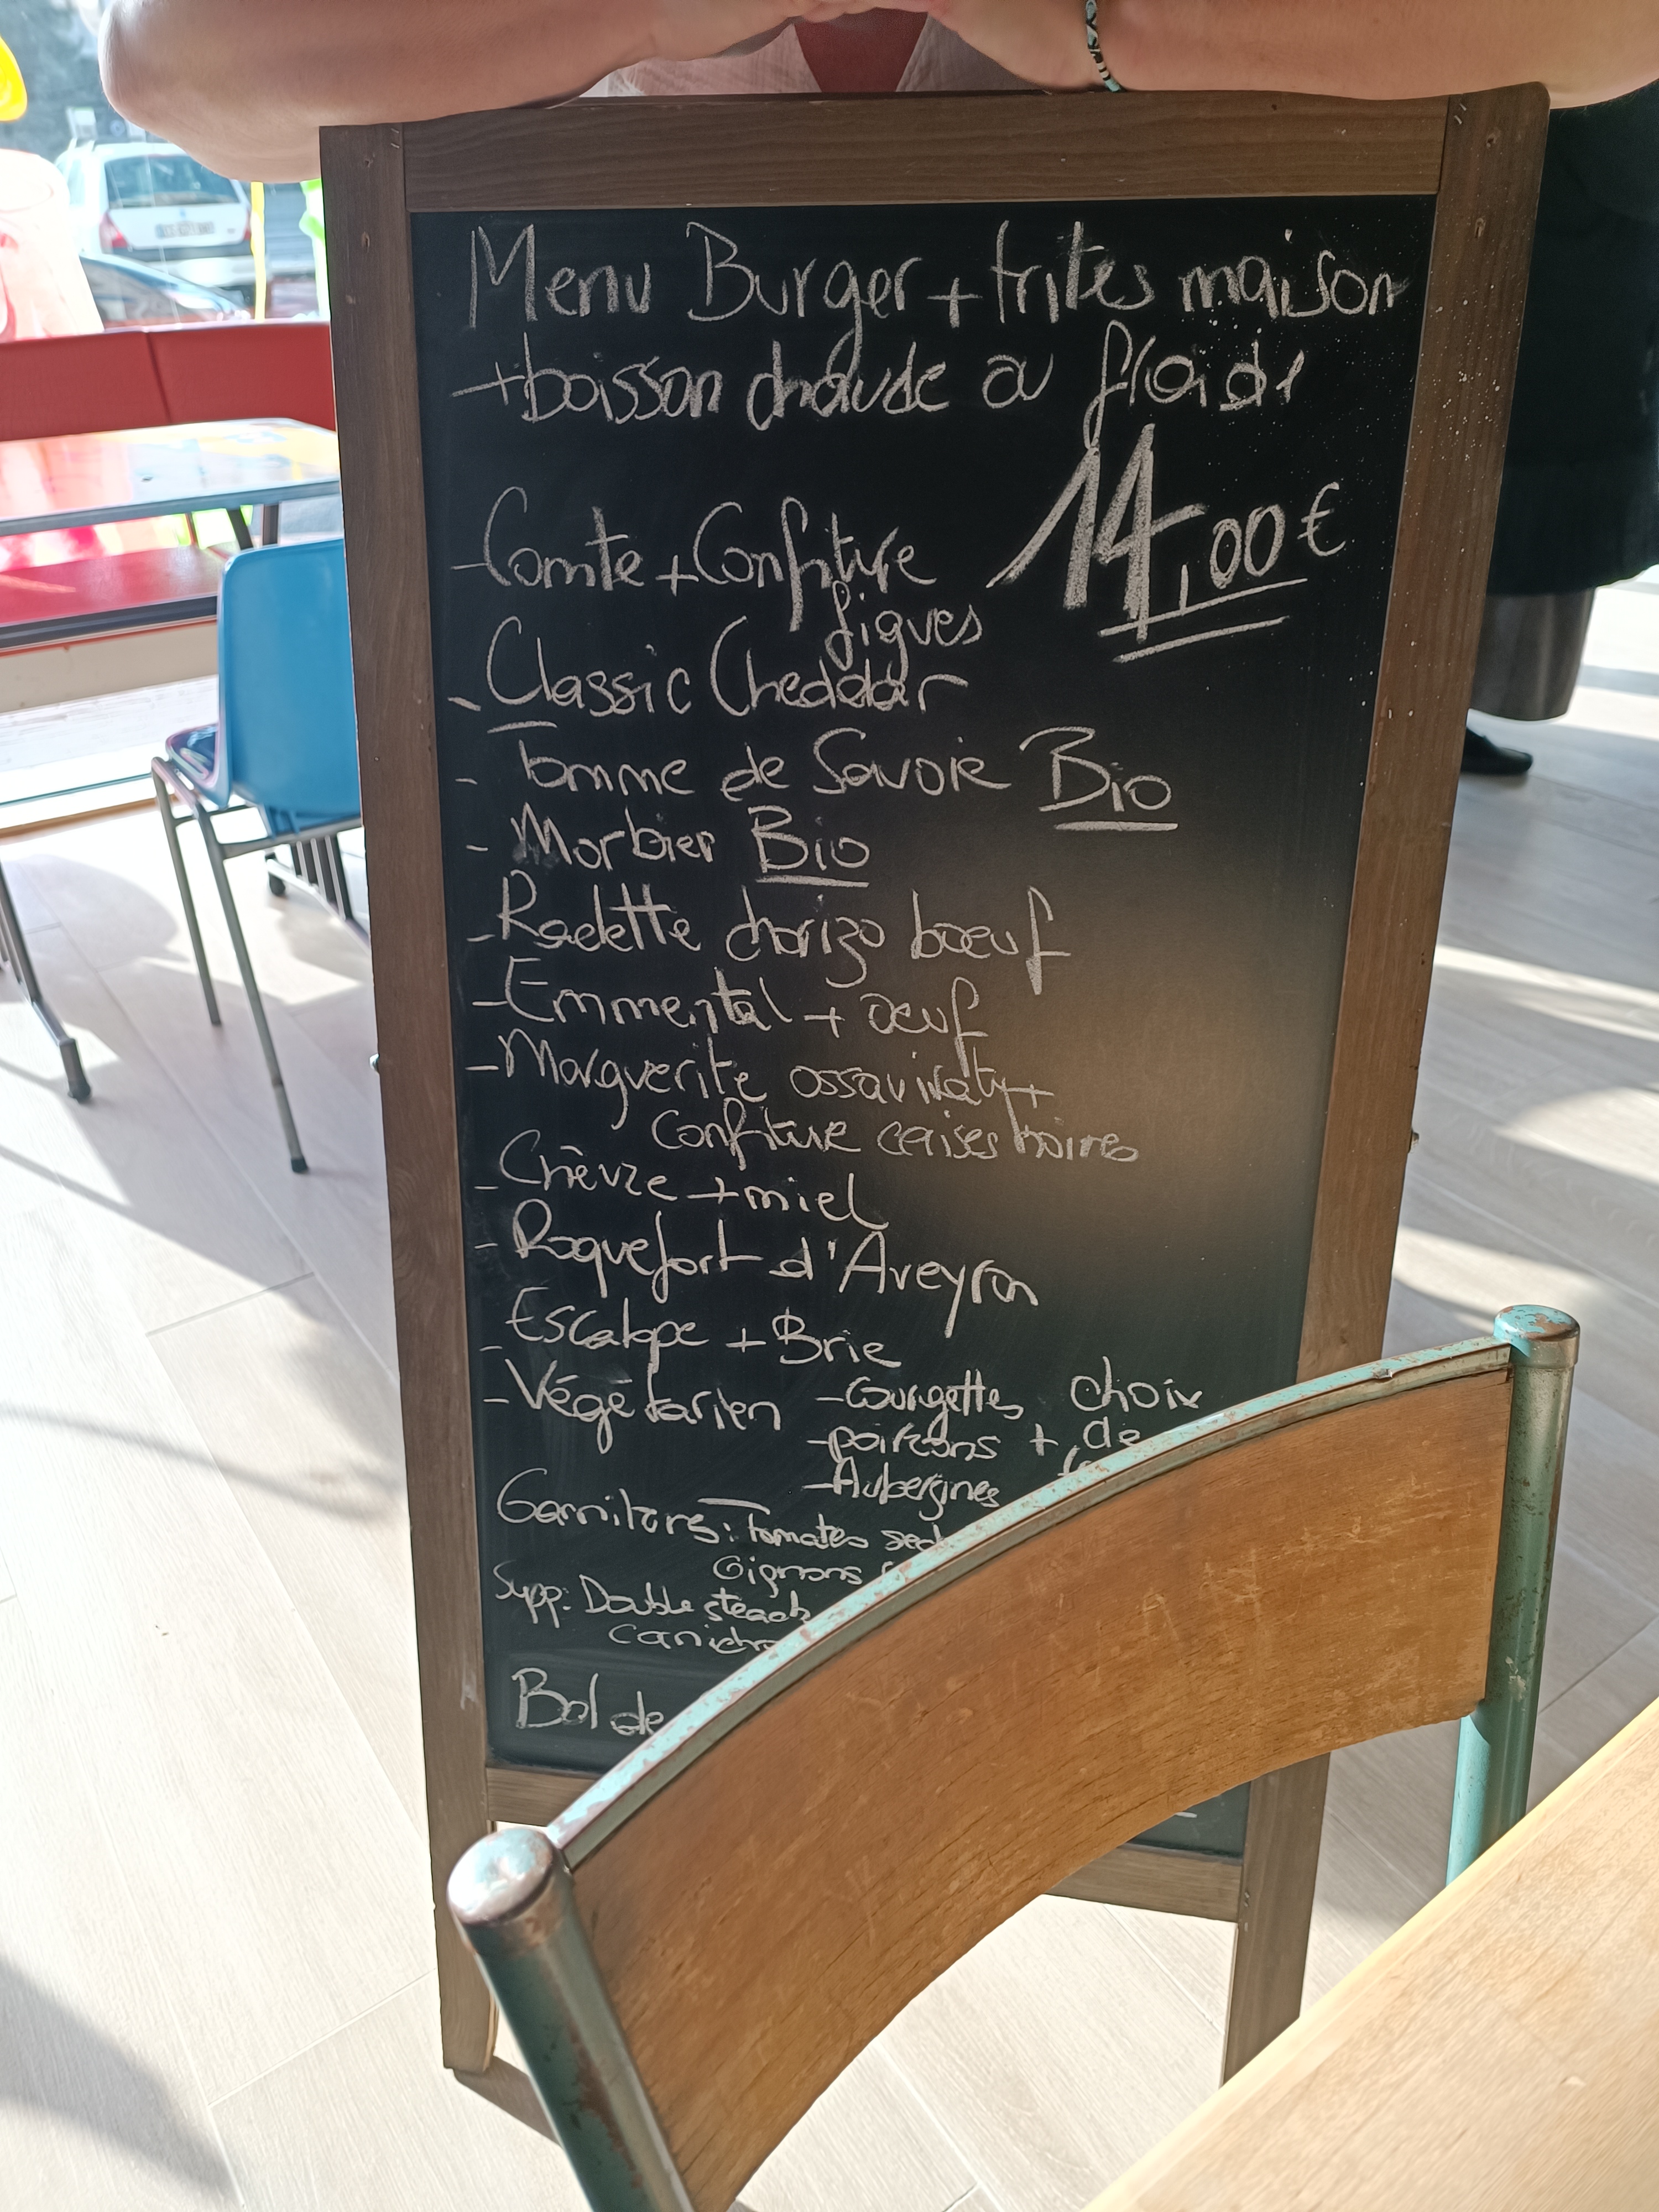 Menu Burger + frites maison
+ boisson chaude ou froide
14,00 €
- Comte + Confiture
figues
- Classic Cheddar
- Tomme de Savoie Bio
- Morbier Bio
- Raclette chorizo boeuf
- Emmental + oeuf
- Marguerite ossauiraty +
Confiture cerises noires
- Chèvre + miel
- Roquefort d'Aveyron
- Escalope + Brie
- Végétarien - Courgettes choix
- poivrons + de
- Aubergines
Garnitures: Tomates
Oignons
Supp: Double steack
Bol de